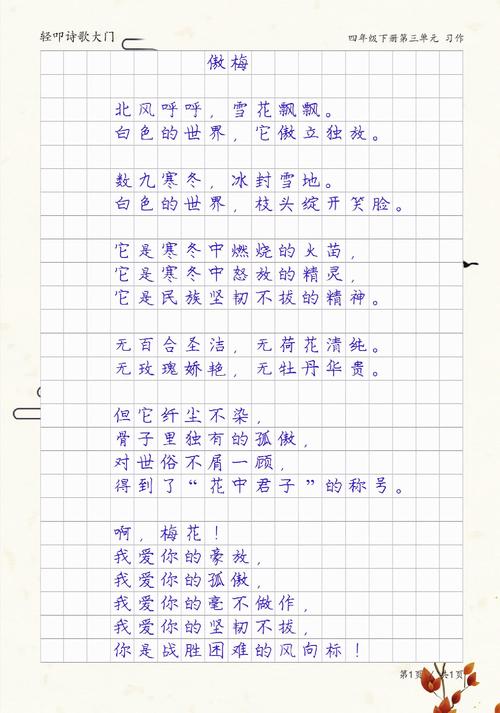 轻叩诗歌大门
四年级下册第三单元 习作
傲梅
北风呼呼，雪花飘飘。
白色的世界，它傲立独放。
数九寒冬，冰封雪地。
白色的世界，枝头绽开笑脸。
它是寒冬中燃烧的火苗，
它是寒冬中怒放的精灵，
它是民族坚韧不拔的精神。
无百合圣洁，无荷花清纯。
无玫瑰娇艳，无牡丹华贵。
但它纤尘不染，
骨子里独有的孤傲，
对世俗不屑一顾，
得到了“花中君子”的称号。
啊，梅花！
我爱你的豪放，
我爱你的孤傲，
我爱你的毫不做作，
我爱你的坚韧不拔，
你是战胜困难的风向标！
第1页 / 共1页